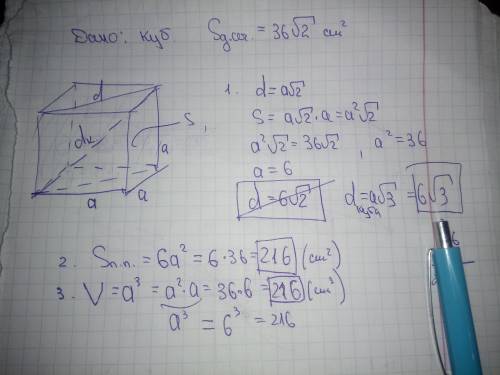 Дано: куб. Sд.сеч. = 36√2 см²
1. d = a√2
S = a√2·a = a²√2
a²√2 = 36√2, a² = 36
a = 6
d = 6√2 d куба = a√3 = 6√3
d
dк
S
a
a
a
2. Sп.п. = 6a² = 6·36 = 216 (см²)
3. V = a³ = a²·a = 36·6 = 216 (см³)
a³ = 6³ = 216